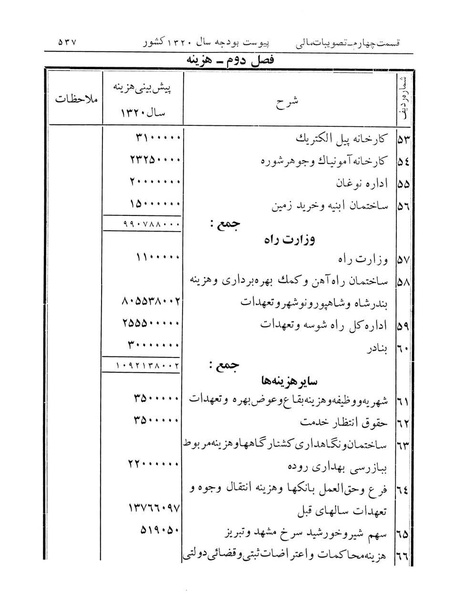 قسمت چهارم ـ تصویبات مالی پیوست بودجه سال ۱۳۲۰ کشور ۵۳۷
فصل دوم ـ هزینه
شماره ردیف شرح پیش‌بینی هزینه سال ۱۳۲۰ ملاحظات
۵۳ کارخانه پیل الکتریك ۳۱۰۰۰۰۰
۵۴ کارخانه آمونیاك و جوهر شوره ۲۳۲۵۰۰۰۰
۵۵ اداره نوغان ۲۰۰۰۰۰۰۰
۵۶ ساختمان ابنیه و خرید زمین ۱۵۰۰۰۰۰۰
جمع : ۹۹۰۷۸۸۰۰۰
وزارت راه
۵۷ وزارت راه ۱۱۰۰۰۰۰۰
۵۸ ساختمان راه آهن و کمك بهره برداری و هزینه
بندرشاه و شاهپور و نوشهر و تعهدات ۸۰۵۵۳۸۰۰۲
۵۹ اداره کل راه شوسه و تعهدات ۲۵۵۵۰۰۰۰۰
۶۰ بنادر ۳۰۰۰۰۰۰۰
جمع : ۱۰۹۲۱۳۸۰۰۲
سایر هزینه‌ها
۶۱ شهریه و وظیفه و هزینه بقاع و عوض بهره و تعهدات ۳۵۰۰۰۰۰
۶۲ حقوق انتظار خدمت ۳۵۰۰۰۰
۶۳ ساختمان و نگاهداری کشتارگاهها و هزینه مربوط
ببازرسی بهداری روده ۲۲۰۰۰۰۰۰
۶۴ فرع و حق‌العمل بانکها و هزینه انتقال وجوه و
تعهدات سالهای قبل ۱۳۷۶۶۰۹۷
۶۵ سهم شیر و خورشید سرخ مشهد و تبریز ۵۱۹۰۵۰
۶۶ هزینه محاکمات و اعتراضات ثبتی و قضائی دولتی